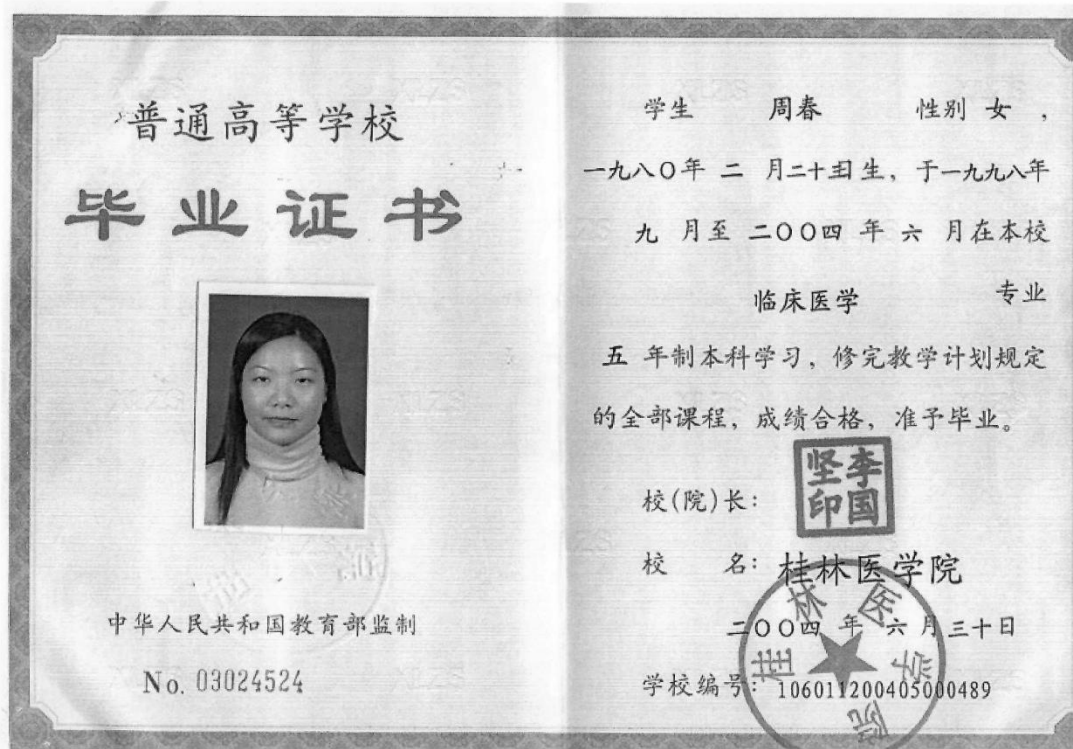 普通高等学校
毕业证书
中华人民共和国教育部监制
No. 03024524
学生 周春 性别 女 ，
一九八〇年 二 月二十 日生，于一九九八年
九 月至 二〇〇四 年 六 月在本校
临床医学 专业
五 年制本科学习，修完教学计划规定
的全部课程，成绩合格，准予毕业。
校(院)长：
李国坚印
校 名：桂林医学院
二〇〇四 年 六 月三十日
学校编号：106011200405000489
桂林医学院